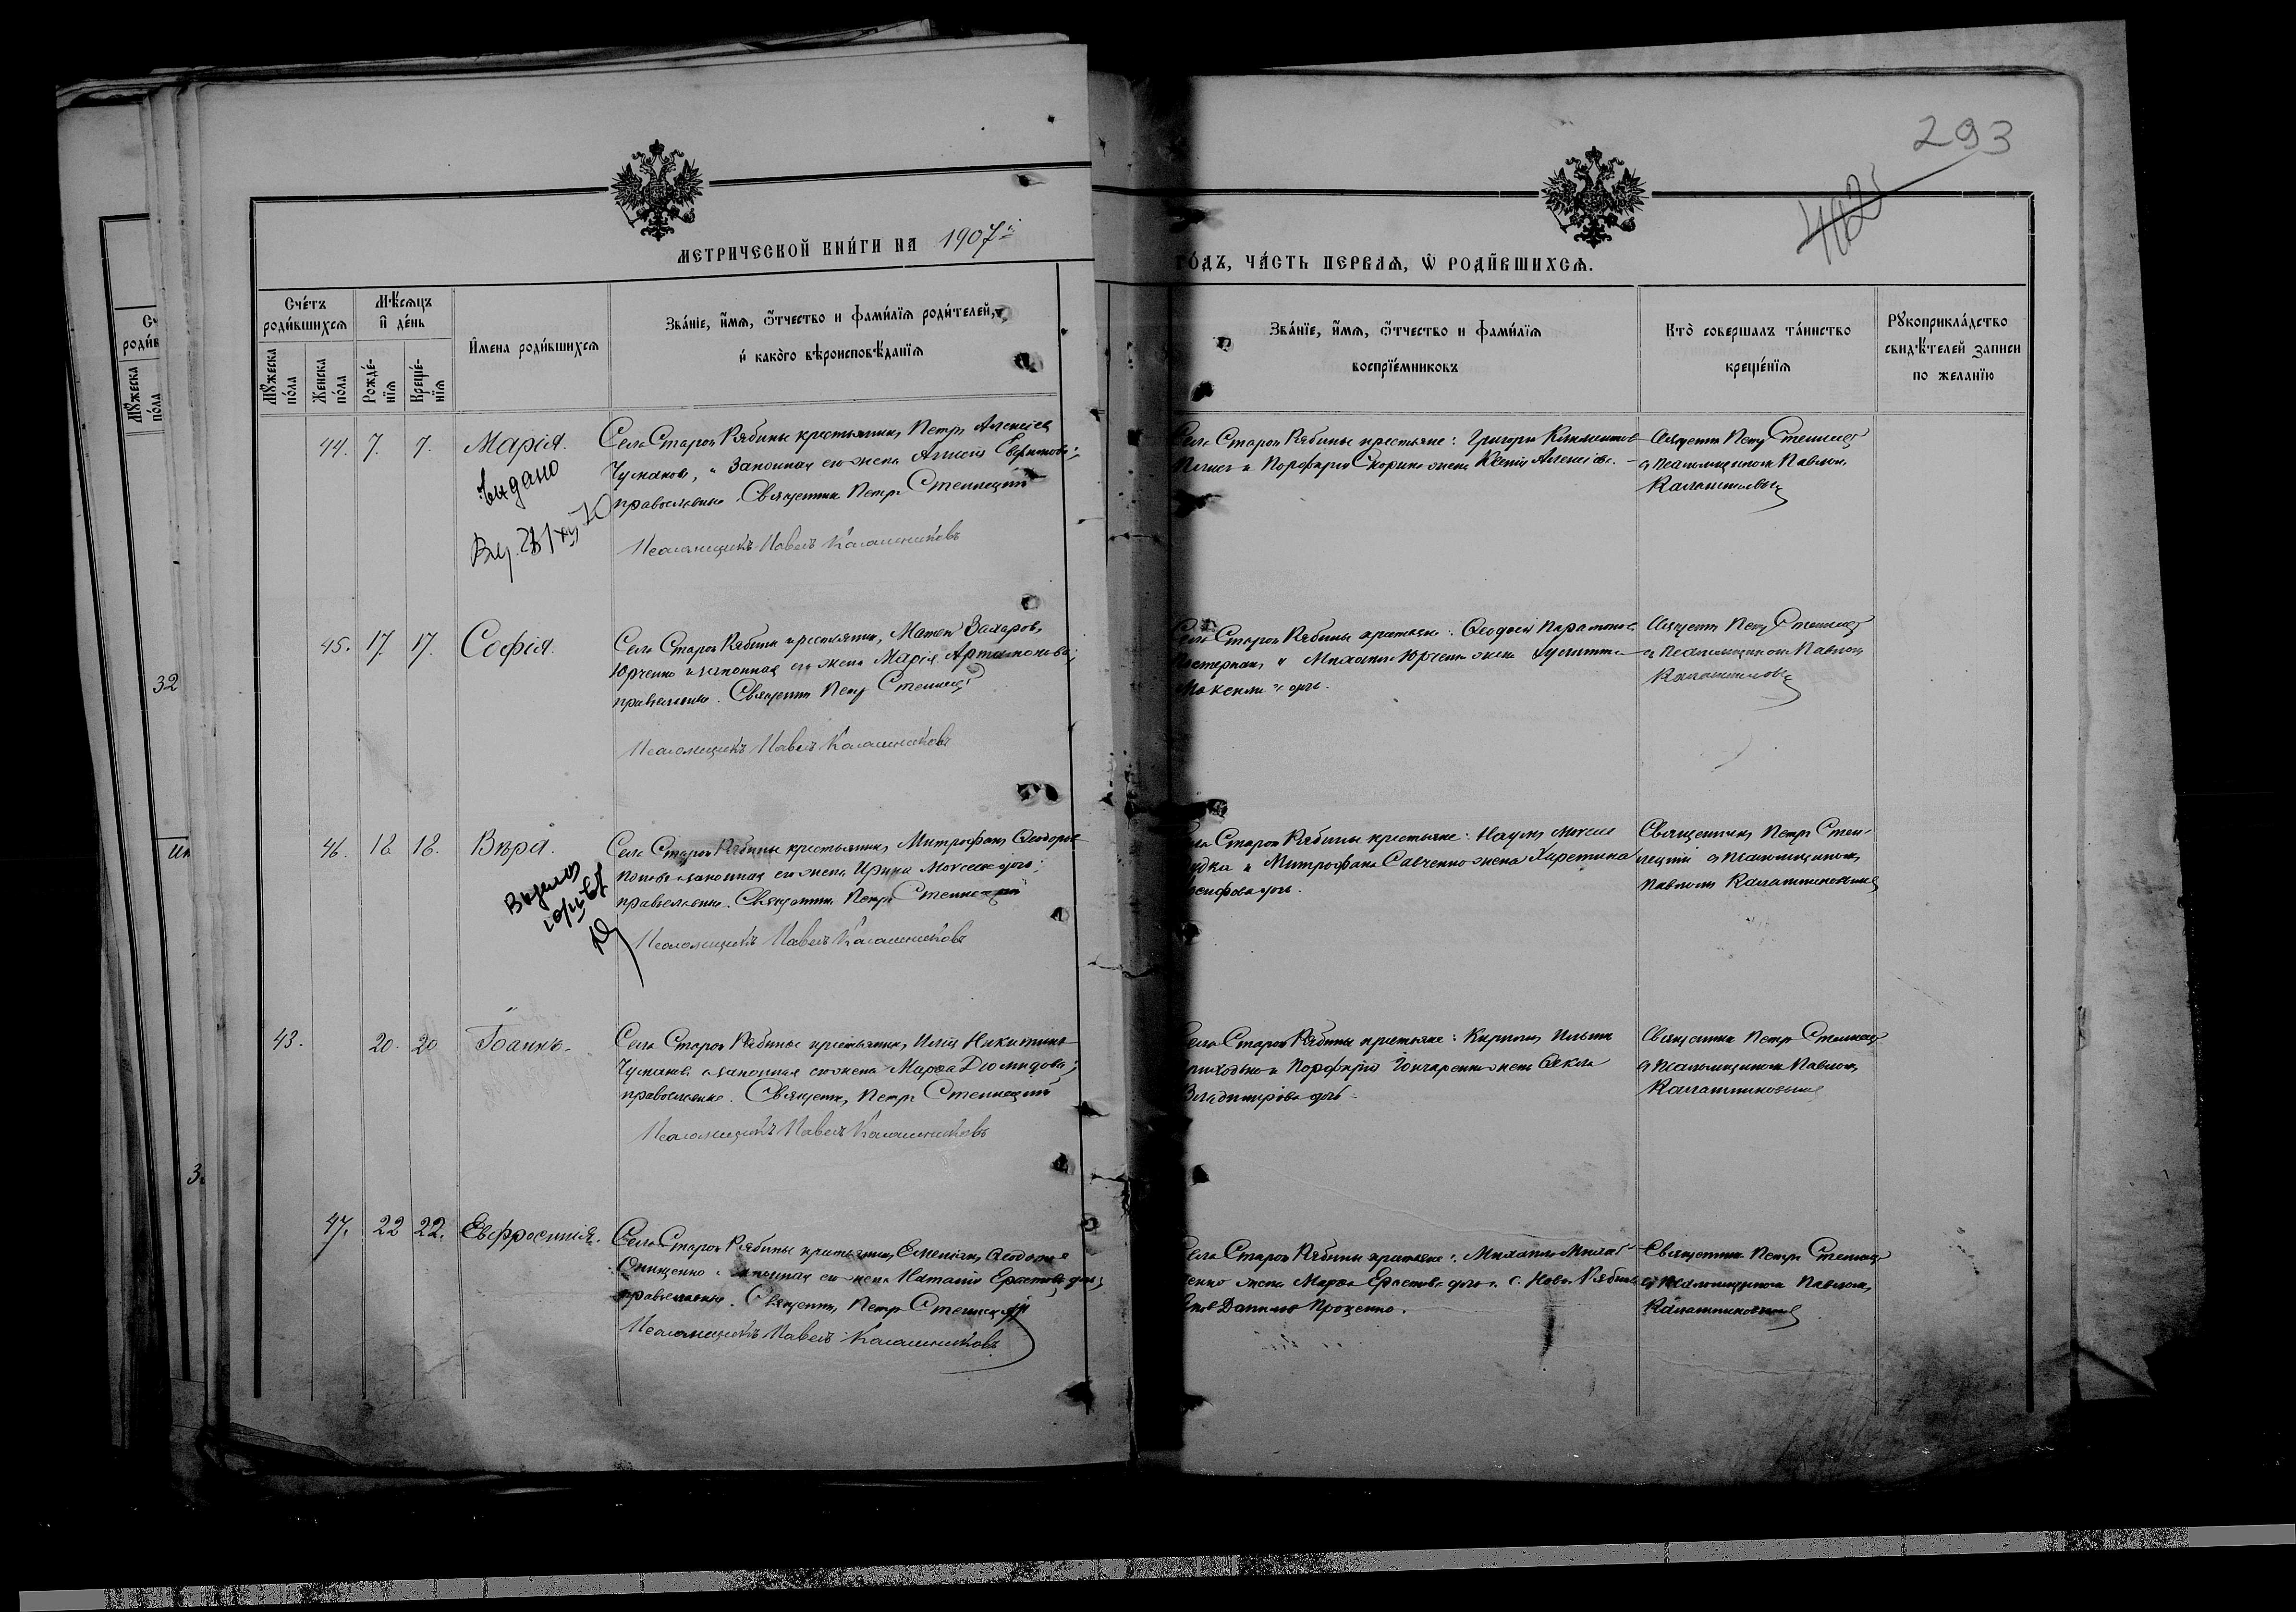 293
402
МЕТРИЧЕСКОЙ КНИГИ НА 1907й
ГОДЪ, ЧАСТЬ ПЕРВАЯ, Ѡ РОДИВШИХСЯ.
Счетъ родившихся
Мужеска пола
Женска пола
Мѣсяцъ и день
Рожденія
Крещенія
Имена родившихся
Званіе, имя, отчество и фамилія родителей,
и какого вѣроисповѣданія
Званіе, имя, отчество и фамилія
воспріемниковъ
Кто совершалъ таинство
крещенія
Рукоприкладство
свидѣтелей записи
по желанію
44. 7. 7. Марія.
Выдано
Села Старой Рябины крестьянинъ Петръ Алексіевъ
Чумаковъ, и законная его жена
православные. Священникъ Петръ Стеллецкій
Псаломщикъ Павелъ Калашниковъ
Села Старой Рябины крестьяне: Григорій Климентовъ
и Порфирія Скорика жена Ксенія Алексіева
Священникъ Петръ Стеллецкій
съ псаломщикомъ Павломъ
Калашниковымъ
45. 17. 17. Софія.
Села Старой Рябины крестьянинъ, Матвѣй Захаровъ
Юрченко и законная его жена Марія Артамонова;
православные. Священникъ Петръ Стеллецкій
Псаломщикъ Павелъ Калашниковъ
Села Старой Рябины крестьяне: Ѳеодосій Парамоновъ
Пастернакъ и Михаила Юрченка жена
Священникъ Петръ Стеллецкій
съ псаломщикомъ Павломъ
Калашниковымъ
46. 18. 18. Вѣра.
Села Старой Рябины крестьянинъ, Митрофанъ Ѳеодоровъ
законная его жена Ирина Моисеева дочь;
православные. Священникъ Петръ Стеллецкій
Псаломщикъ Павелъ Калашниковъ
Села Старой Рябины крестьяне: Наумъ
и Митрофана Савченко жена Харитина
Іосифова дочь.
Священникъ Петръ Стел-
лецкій съ псаломщикомъ
Павломъ Калашниковымъ
43. 20. 20 Іоаннъ.
Села Старой Рябины крестьянинъ, Илія Никитинъ
Чумаковъ и законная его жена Марѳа Діомидова;
православные. Священникъ Петръ Стеллецкій
Псаломщикъ Павелъ Калашниковъ
Села Старой Рябины крестьяне: Кириллъ Ильинъ
Приходько и Порфирія Гончаренко жена Ѳекла
Владимірова дочь.
Священникъ Петръ Стеллецкій
съ псаломщикомъ Павломъ
Калашниковымъ
47. 22 22. Евфросинія.
Села Старой Рябины крестьянинъ,
Онищенко и законная его жена Наталія Ерастова дочь;
православные. Священникъ Петръ Стеллецкій
Псаломщикъ Павелъ Калашниковъ
Села Старой Рябины крестьяне: Михаила
жена Марѳа Ерастова дочь и с. Новой Рябины
Даниилъ Проценко.
Священникъ Петръ Стеллецкій
съ псаломщикомъ Павломъ
Калашниковымъ
32